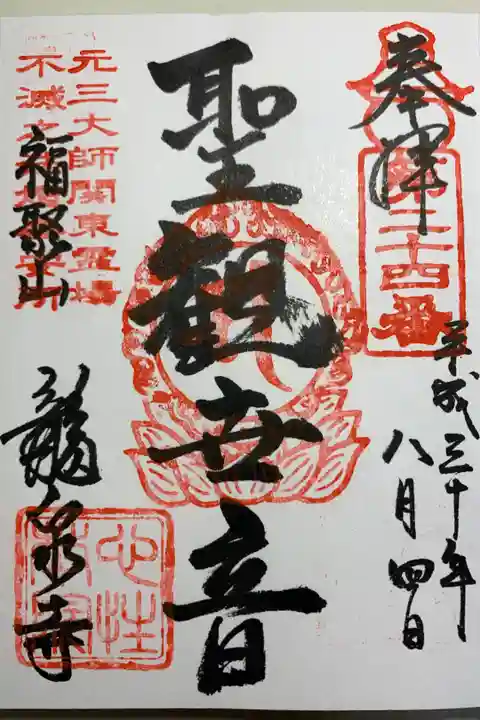 奉拝
第二十四番
平成三十年
八月四日
聖観世音
元三大師関東霊場
不滅之
福聚山
龍泉寺
心性